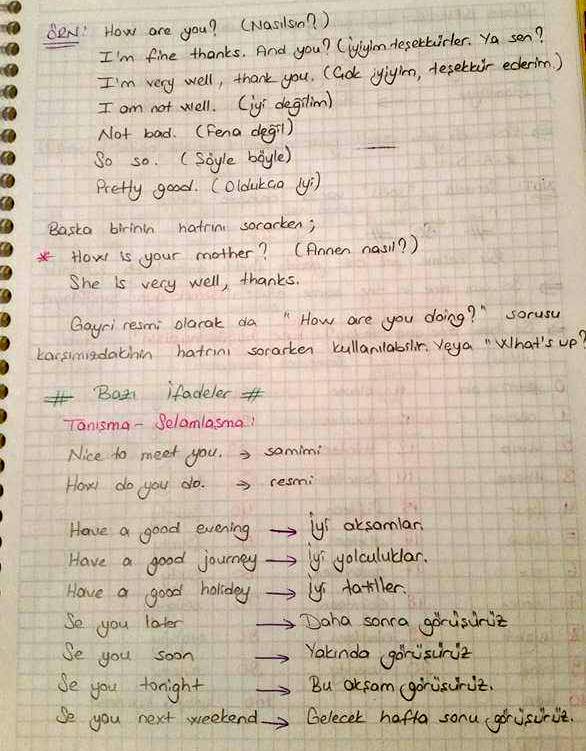 ÖRN: How are you? (Nasılsın?)
I'm fine thanks. And you? (iyiyim teşekkürler. Ya sen?
I'm very well, thank you. (Çok iyiyim, teşekkür ederim.)
I am not well. (iyi değilim)
Not bad. (Fena değil)
So so. (Şöyle böyle)
Pretty good. (Oldukça iyi)
Başka birinin hatrını sorarken;
* How is your mother? (Annen nasıl?)
She is very well, thanks.
Gayri resmi olarak da "How are you doing?" sorusu
karşımızdakinin hatrını sorarken kullanılabilir. Veya "What's up?
# Bazı ifadeler #
Tanışma - Selamlaşma:
Nice to meet you. → samimi
How do you do. → resmi
Have a good evening → İyi akşamlar.
Have a good journey → İyi yolculuklar.
Have a good holidey → İyi tatiller.
Se you later → Daha sonra görüşürüz
Se you soon → Yakında görüşürüz
Se you tonight → Bu akşam görüşürüz.
Se you next weekend → Gelecek hafta sonu görüşürüz.